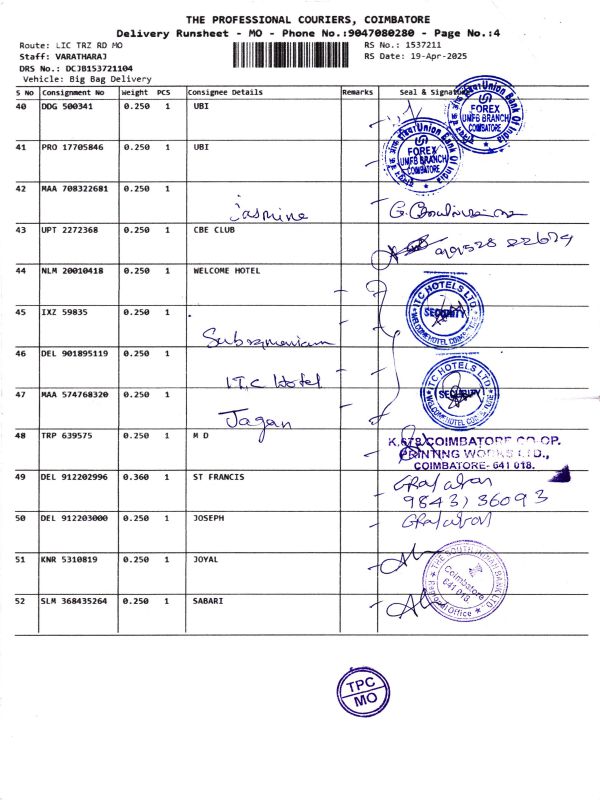 THE PROFESSIONAL COURIERS, COIMBATORE
Delivery Runsheet - MO - Phone No.:9047080280 - Page No.:4
Route: LIC TRZ RD MO RS No.: 1537211
Staff: VARATHARAJ RS Date: 19-Apr-2025
DRS No.: DCJB153721104
Vehicle: Big Bag Delivery
S NO Consignment No Weight PCS Consignee Details Remarks Seal & Signature
40 DDG 500341 0.250 1 UBI
Union Bank Of India
FOREX
UMFB BRANCH
COIMBATORE
41 PRO 17705846 0.250 1 UBI
Union Bank Of India
FOREX
UMFB BRANCH
COIMBATORE
42 MAA 708322681 0.250 1
Jasmine
43 UPT 2272368 0.250 1 CBE CLUB
44 NLM 20010418 0.250 1 WELCOME HOTEL
ITC HOTELS LTD
SECURITY
45 IXZ 59835 0.250 1
Subramaniam
46 DEL 901895119 0.250 1
I.T.C Hotel
ITC HOTELS LTD
SECURITY
47 MAA 574768320 0.250 1
Jagan
48 TRP 639575 0.250 1 M D
K.678 COIMBATORE CO-OP.
PRINTING WORKS LTD.,
COIMBATORE- 641 018.
49 DEL 912202996 0.360 1 ST FRANCIS
9843136093
50 DEL 912203000 0.250 1 JOSEPH
51 KNR 5310819 0.250 1 JOYAL
THE SOUTH INDIAN BANK LTD
Coimbatore
641 018.
Regional Office
52 SLM 368435264 0.250 1 SABARI
TPC
MO